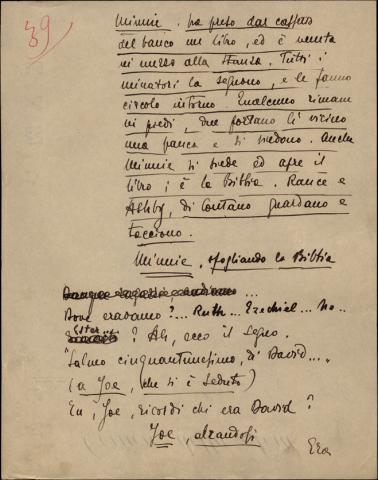 39
Minnie, ha preso dal cassetto
del banco un libro, ed è venuta
in mezzo alla stanza. Tutti i
minatori la seguono, e le fanno
circolo intorno. Qualcuno riman
in piedi, due portano lì vicino
una panca e si siedono. Anche
Minnie si siede ed apre il
libro; è la Bibbia. Rance e
Ashby, di lontano guardano e
tacciono.
Minnie, sfogliando la Bibbia
...
Dove eravamo?... Ruth... Ezechiel... No..
Ester? Ah, ecco il segno.
"Salmo cinquantunesimo, di David..."
(a Joe, che si è seduto)
Eh, Joe, ricordi chi era David?
Joe, alzandosi
Era